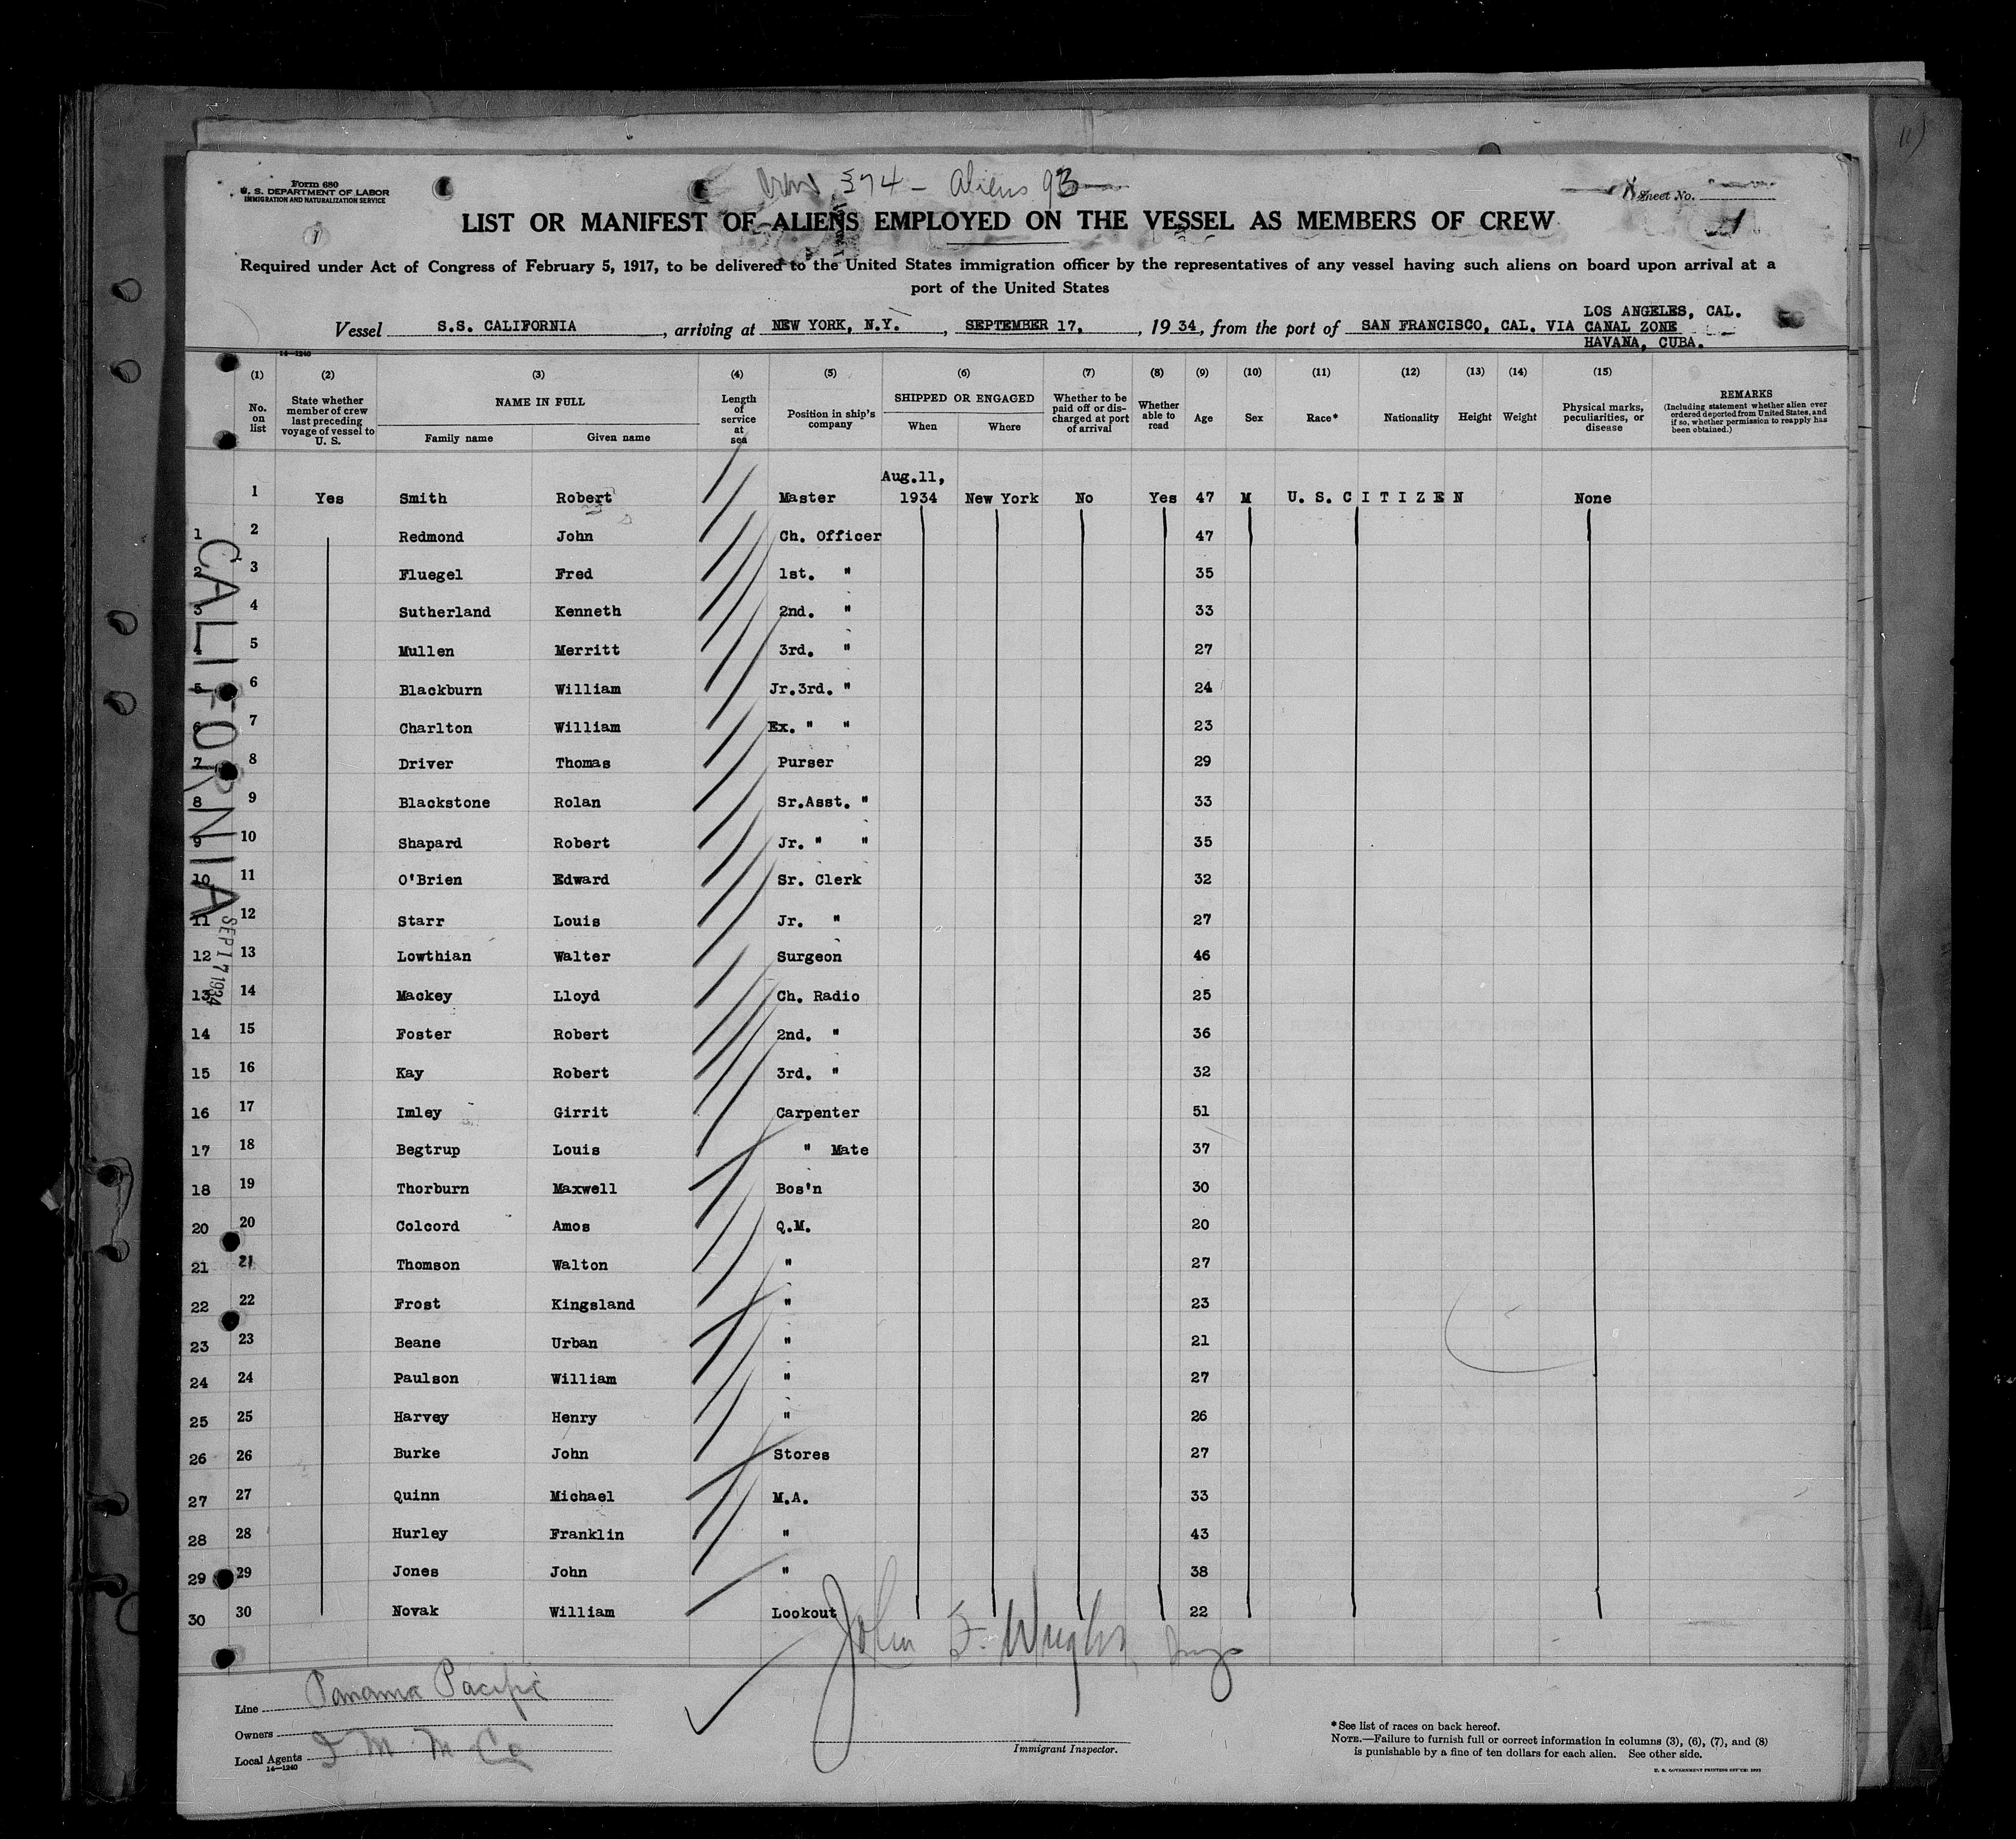 Form 680
U. S. DEPARTMENT OF LABOR
IMMIGRATION AND NATURALIZATION SERVICE
374 - Aliens 93
Sheet No.
1
LIST OR MANIFEST OF ALIENS EMPLOYED ON THE VESSEL AS MEMBERS OF CREW
Required under Act of Congress of February 5, 1917, to be delivered to the United States immigration officer by the representatives of any vessel having such aliens on board upon arrival at a
port of the United States
LOS ANGELES, CAL.
Vessel S.S. CALIFORNIA, arriving at NEW YORK, N.Y., SEPTEMBER 17, 1934, from the port of SAN FRANCISCO, CAL. VIA CANAL ZONE
HAVANA, CUBA.
14—1240
(1) No. on list
(2) State whether member of crew last preceding voyage of vessel to U. S.
(3) NAME IN FULL Family name Given name
(4) Length of service at sea
(5) Position in ship's company
(6) SHIPPED OR ENGAGED When Where
(7) Whether to be paid off or discharged at port of arrival
(8) Whether able to read
(9) Age
(10) Sex
(11) Race*
(12) Nationality
(13) Height
(14) Weight
(15) Physical marks, peculiarities, or disease
REMARKS (Including statement whether alien ever ordered deported from United States, and if so, whether permission to reapply has been obtained.)
Aug.11,
1 Yes Smith Robert Master 1934 New York No Yes 47 M U. S. C I T I Z E N None
1 2 Redmond John Ch. Officer 47
2 3 Fluegel Fred 1st. " 35
3 4 Sutherland Kenneth 2nd. " 33
4 5 Mullen Merritt 3rd. " 27
5 6 Blackburn William Jr.3rd. " 24
6 7 Charlton William Ex. " " 23
7 8 Driver Thomas Purser 29
8 9 Blackstone Rolan Sr.Asst. " 33
9 10 Shapard Robert Jr. " " 35
10 11 O'Brien Edward Sr. Clerk 32
11 12 Starr Louis Jr. " 27
12 13 Lowthian Walter Surgeon 46
13 14 Mackey Lloyd Ch. Radio 25
14 15 Foster Robert 2nd. " 36
15 16 Kay Robert 3rd. " 32
16 17 Imley Girrit Carpenter 51
17 18 Begtrup Louis " Mate 37
18 19 Thorburn Maxwell Bos'n 30
20 20 Colcord Amos Q.M. 20
21 21 Thomson Walton " 27
22 22 Frost Kingsland " 23
23 23 Beane Urban " 21
24 24 Paulson William " 27
25 25 Harvey Henry " 26
26 26 Burke John Stores 27
27 27 Quinn Michael M.A. 33
28 28 Hurley Franklin " 43
29 29 Jones John " 38
30 30 Novak William Lookout 22
CALIFORNIA
SEP 17 1934
John F. Wright,
Line Panama Pacific
Owners
Local Agents I M M Co
14—1240
Immigrant Inspector.
*See list of races on back hereof.
NOTE.—Failure to furnish full or correct information in columns (3), (6), (7), and (8)
is punishable by a fine of ten dollars for each alien. See other side.